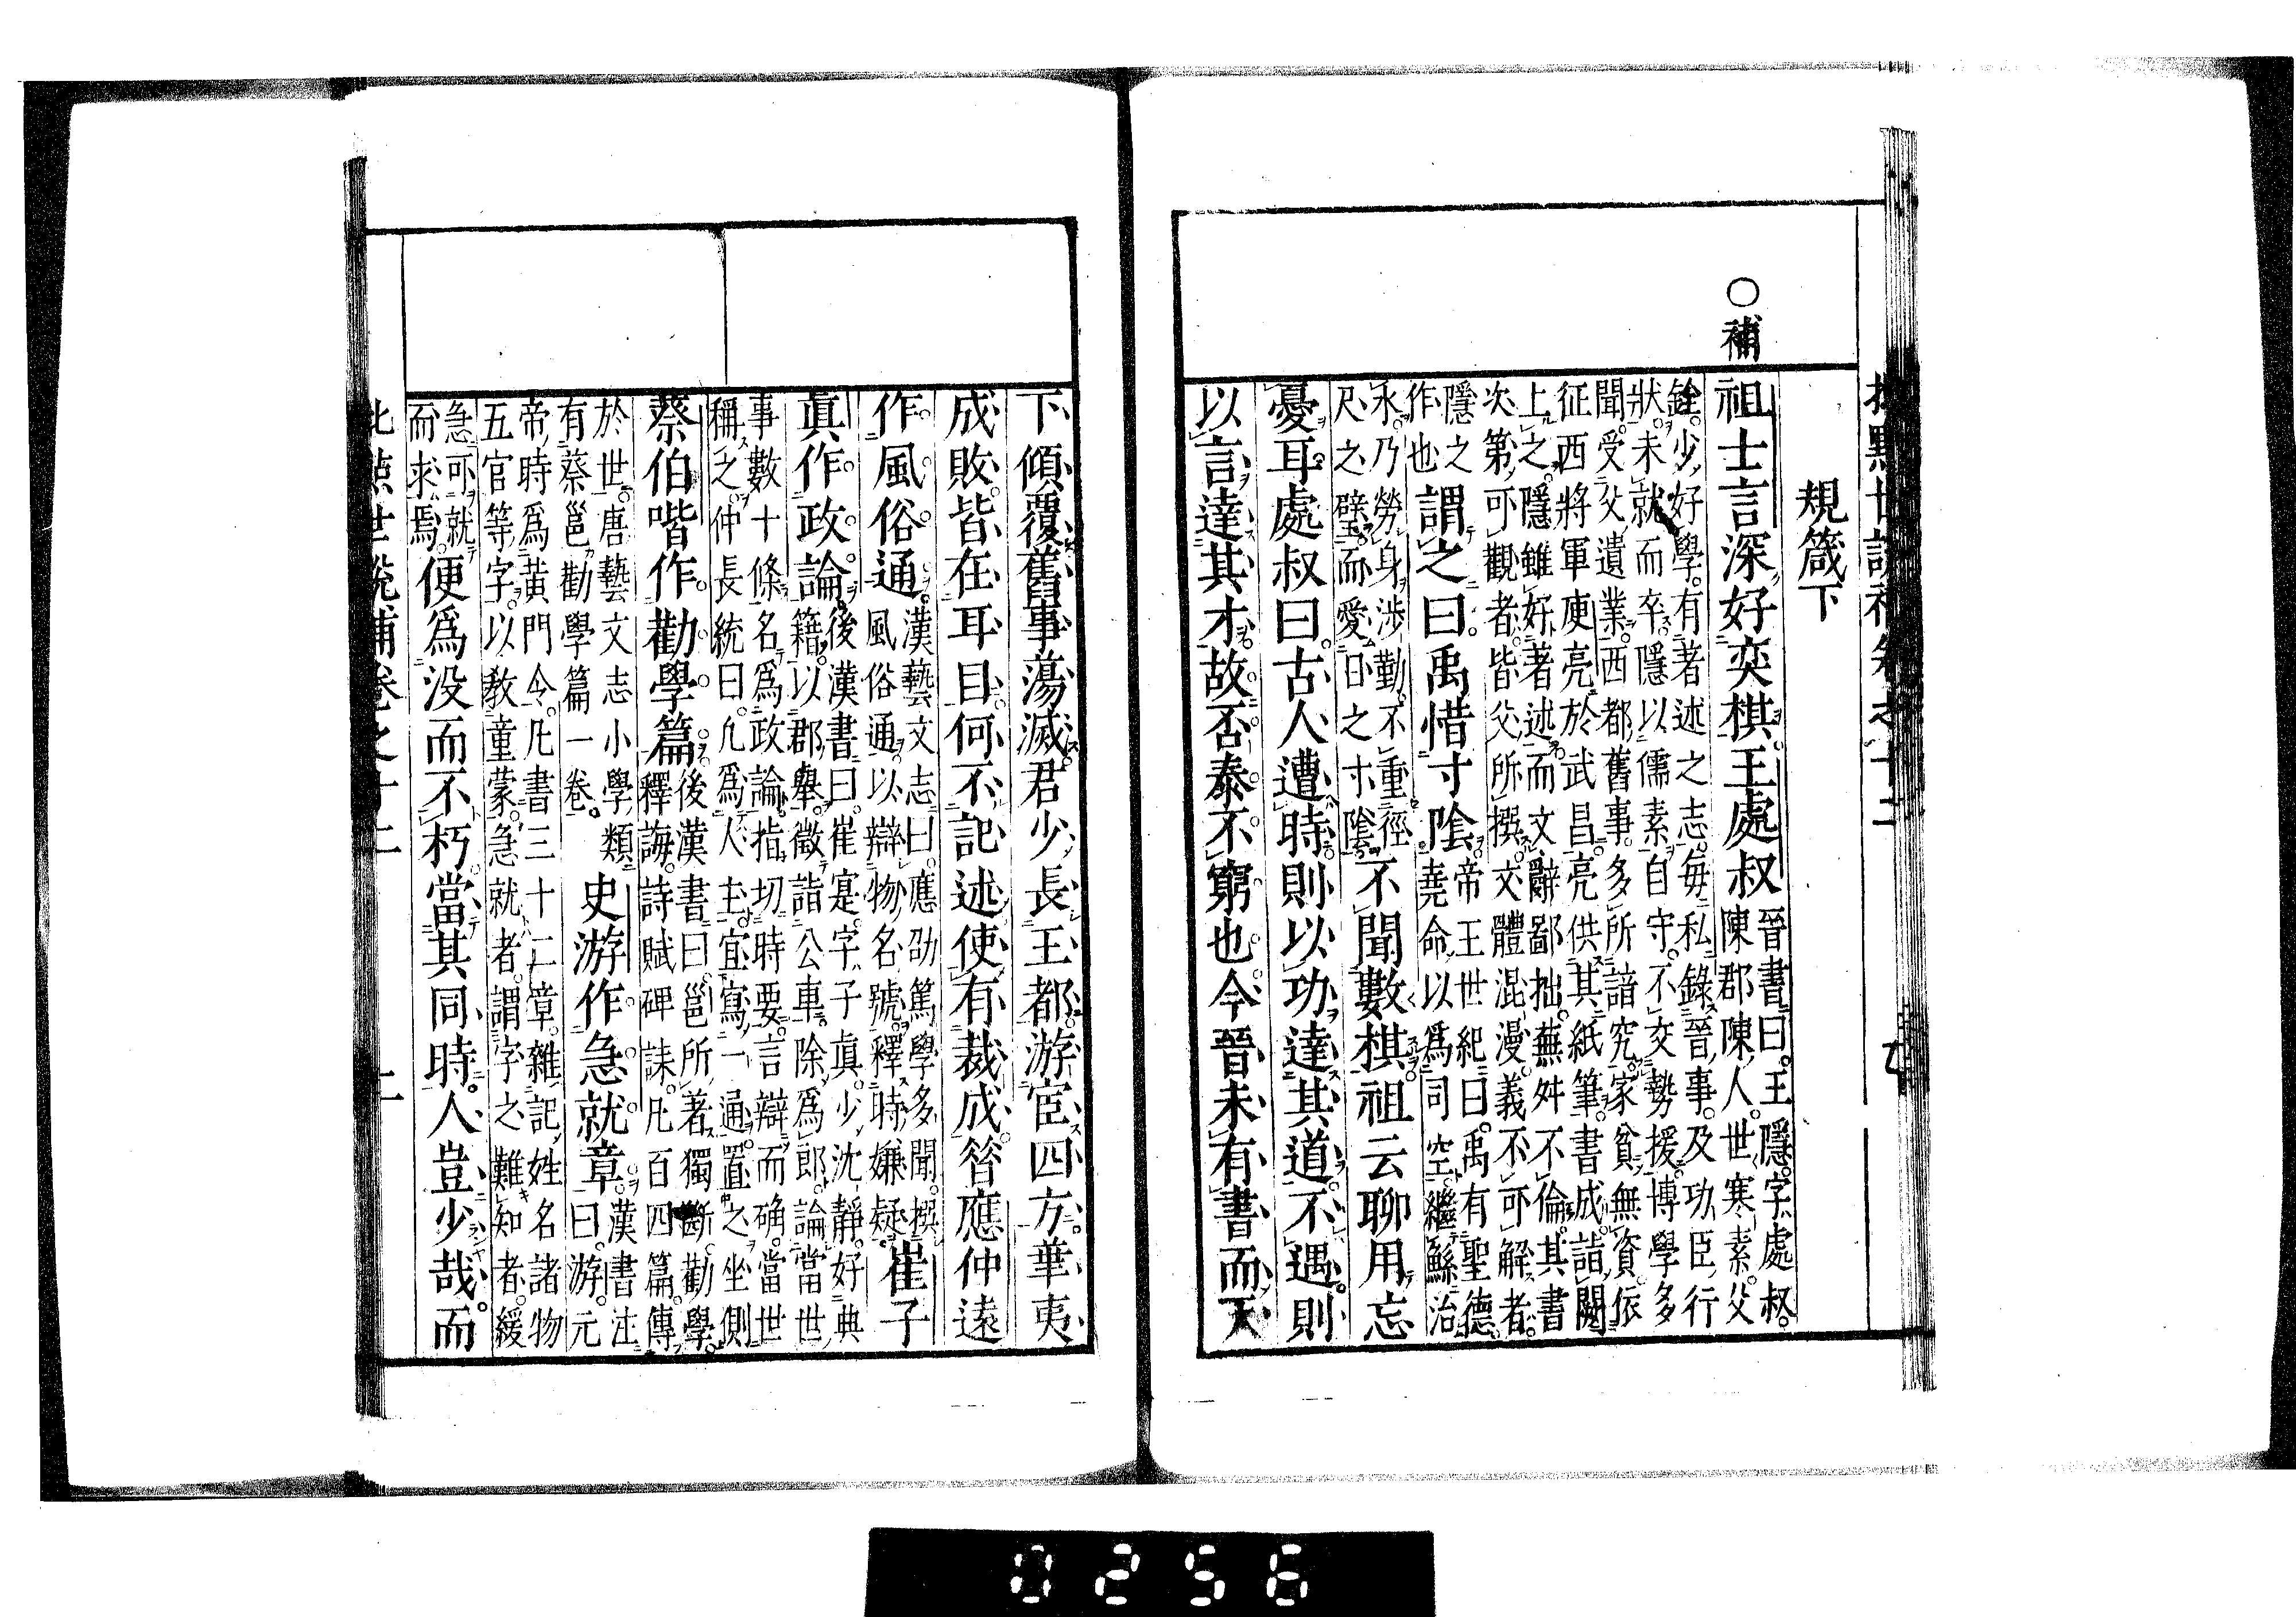 規箴下
○補
祖士言深好奕棋王處叔
晉書曰王隱字處叔
陳郡陳人世寒素父
銓少好學有著述之志每私錄晉事及功臣行
狀未就而卒隱以儒素自守不交勢援博學多
聞受父遺業西都舊事多所諳究家貧無資依
征西將軍庾亮於武昌亮供其紙筆書成詣闕
上之隱雖好著述而文辭鄙拙蕪舛不倫其書
次第可觀者皆父所撰文體混漫義不可解者
隱之
作也
謂之曰禹惜寸陰
帝王世紀曰禹有聖德
堯命以爲同空繼鯀治
水乃勞身涉勤不重徑
尺之璧而愛日之寸陰
不聞數棋祖云聊用忘
憂耳處叔曰古人遭時則以功達其道不遇則
以言達其才故否泰不窮也今晉未有書而天
下傾覆舊事蕩滅君少長王都游宦四方華夷
成敗皆在耳目何不記述使有裁成答應仲遠
作風俗通
漢藝文志曰應劭篤學多聞撰
風俗通以辯物名號釋時嫌疑
崔子
眞作政論
後漢書曰崔寔字子眞少沈靜好典
籍以郡舉徵詣公車除爲郎論當世
事數十條名爲政論指切時要言辯而确當世
稱之仲長統曰凡爲人主宜寫一通置之坐側
蔡伯喈作勸學篇
後漢書曰邕所著獨斷勸學
釋誨詩賦碑誄凡百四篇傳
於世唐藝文志小學類
有蔡邕勸學篇一卷
史游作急就章
漢書注
曰游元
帝時爲黃門令凡書三十二章雜記姓名諸物
五官等字以教童蒙急就者謂字之難知者緩
急可就
而求焉
便爲没而不朽當其同時人豈少哉而
0256